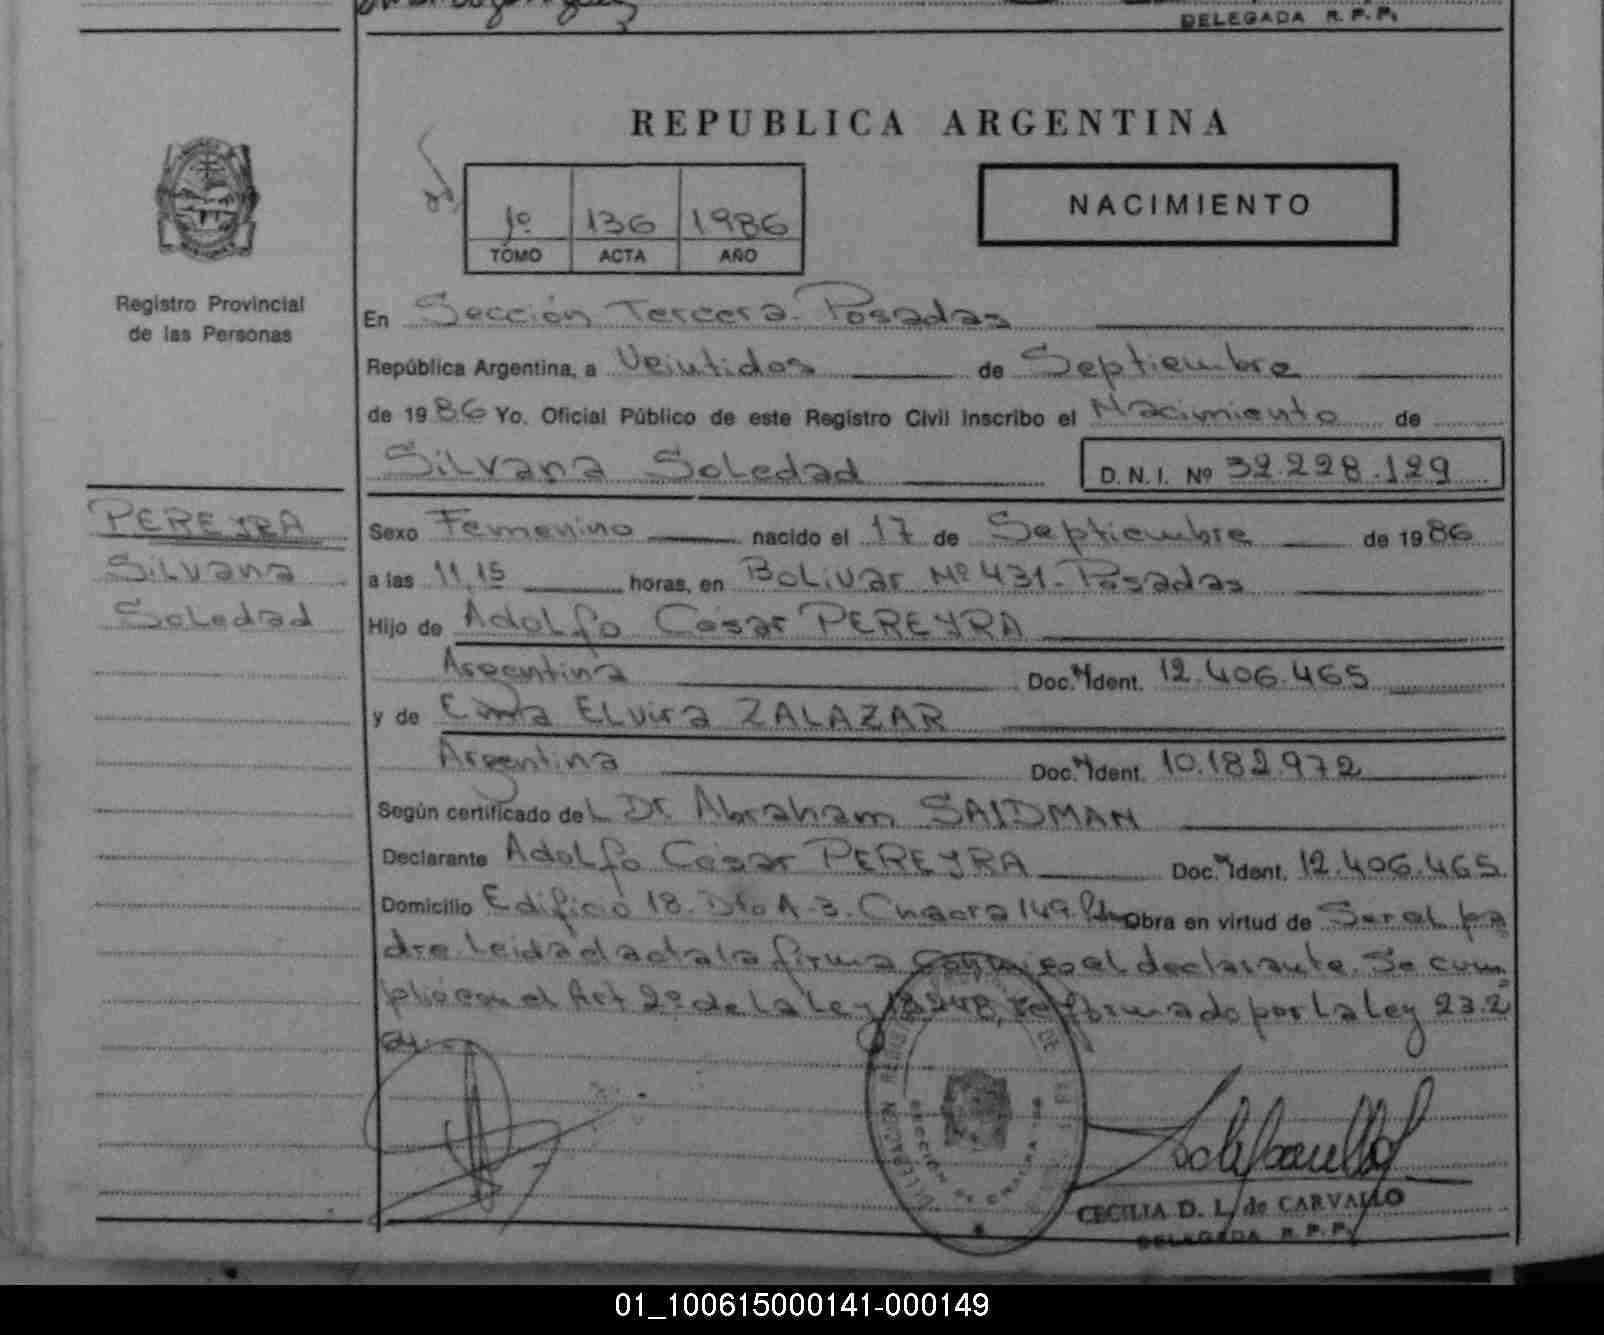 DELEGADA R. P. P.
REPUBLICA ARGENTINA
1º 136 1986
TOMO ACTA AÑO
NACIMIENTO
Registro Provincial
de las Personas
En Sección Tercera - Posadas
República Argentina, a Veintidos de Septiembre
de 1986 Yo, Oficial Público de este Registro Civil inscribo el Nacimiento de
Silvana Soledad D. N. I. Nº 32.228.129
PEREYRA
Silvana
Soledad
Sexo Femenino nacido el 17 de Septiembre de 1986
a las 11,15 horas, en Bolivar Nº 431 - Posadas
Hijo de Adolfo César PEREYRA
Argentina Doc. Ident. 12.406.465
y de Elvira ZALAZAR
Argentina Doc. Ident. 10.182.972
Según certificado del Dr Abraham SAIDMAN
Declarante Adolfo César PEREYRA Doc. Ident. 12.406.465
Domicilio Edificio 18 - Dto A-3 - Chacra 149 Obra en virtud de Ser el pa
dre. Leida el acta la firma conmigo el declarante. Se cum
plió con el Art 2º de la Ley 18.248, reformado por la ley 23.2
CECILIA D. L. de CARVALLO
DELEGADA R. P. P.
01_100615000141-000149